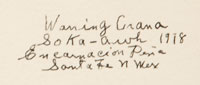 Waning Crana
Soka-awh 1918
Encarnacion Peña
Santa Fe N Mex